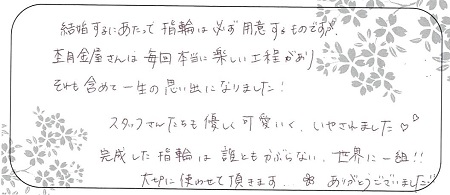 結婚するにあたって指輪は必ず用意するものですが、
杢目金屋さんは毎回本当に楽しい工程があり
それも含めて一生の思い出になりました!
スタッフさんたちも優しく可愛いく、いやされました♡♡
完成した指輪は誰ともかぶらない、世界に一組!!
大切に使わせて頂きます。 ありがとうございました